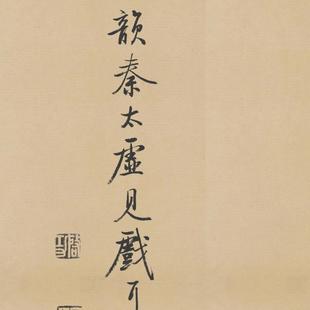 韻秦太虛見戲耳